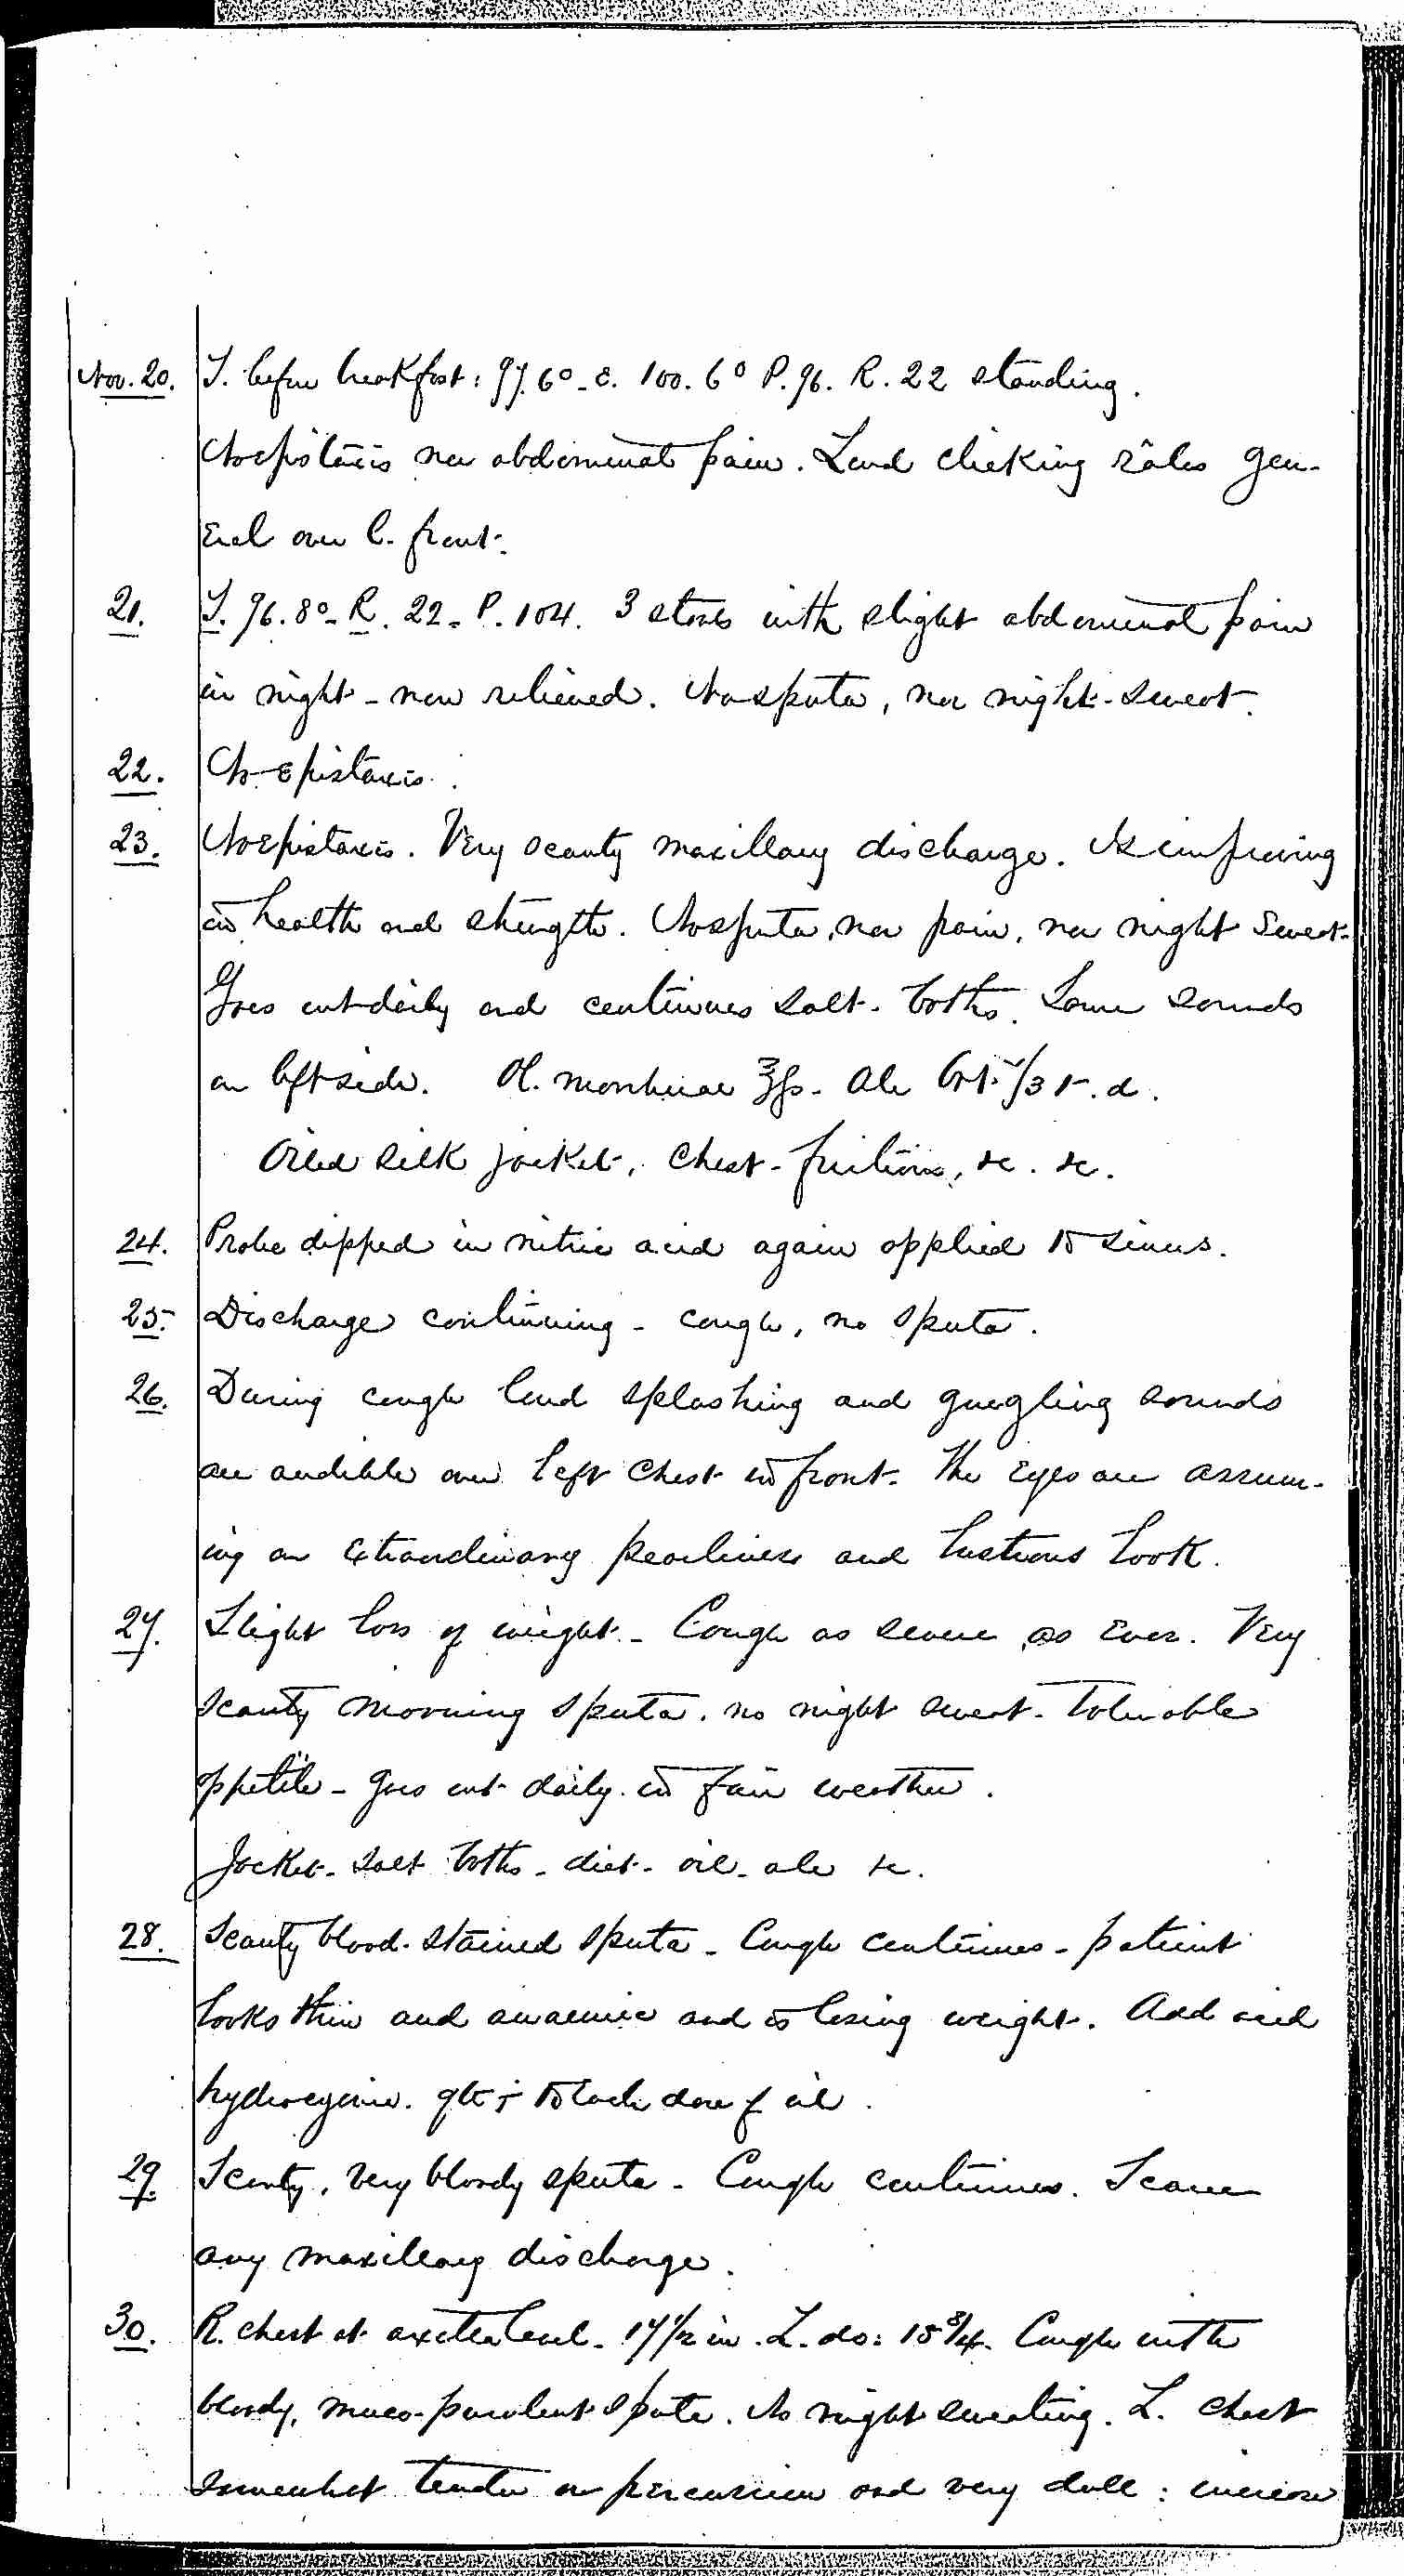 Nov. 20. T. before breakfast: 97.6° - e. 100.6° P. 96. R. 22 standing.
No epistaxis nor abdominal pain. Loud clicking râles gen-
eral over l. front.
21. T. 96.8° - R. 22 - P. 104. 3 stools with slight abdominal pain
in night - now relieved. No sputa, nor night-sweat.
22. No epistaxis.
23. No epistaxis. Very scanty maxillary discharge. Is improving
in health and strength. No sputa, nor pain, nor night sweat.
Goes out daily and continues salt-baths. Same sounds
on left side. Ol. morrhuae ℥fs. Ale bot. 1/3 t. d.
Oiled silk jacket, chest-frictions, &c. &c.
24. Probe dipped in nitric acid again applied to sinus.
25. Discharge continuing - cough, no sputa.
26. During cough loud splashing and gurgling sounds
are audible over left chest in front. The eyes are assum-
ing an extraordinary pearliness and lustrous look.
27. Slight loss of weight - Cough as severe as ever. Very
scanty morning sputa, no night sweat. Tolerable
appetite - goes out daily in fair weather.
Jacket - salt baths - diet - oil - ale &c.
28. Scanty blood-stained sputa - Cough continues - patient
looks thin and anaemic and is losing weight. Add acid
hydrocyanic. gtt j to each dose of oil.
29. Scanty, very bloody sputa - Cough continues. Scarce
any maxillary discharge.
30. R. chest at axilla level - 17 1/2 in. L. do: 15 3/4. Cough with
bloody, muco-purulent sputa. No night sweating. L. chest
somewhat tender on percussion and very dull: